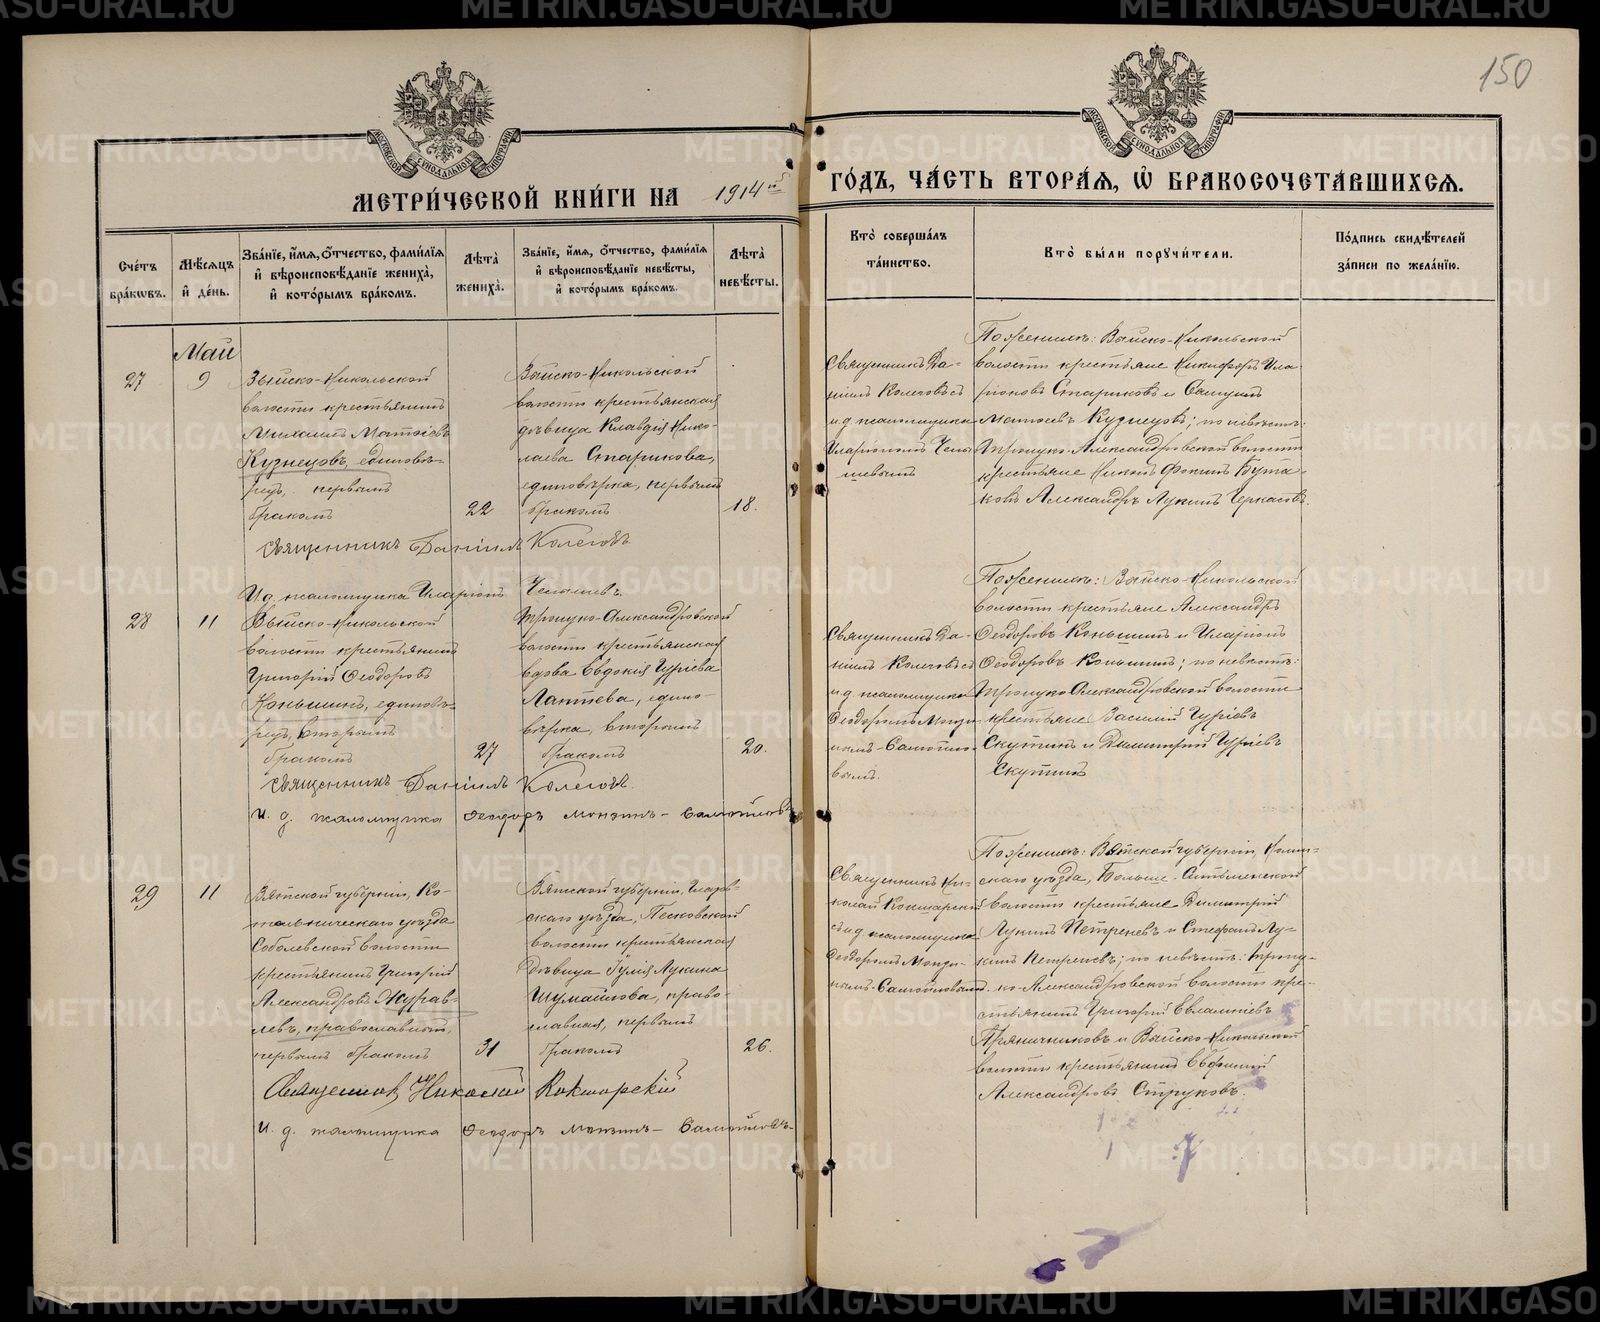 150
МОСКОВСКОЙ СѴНОДАЛЬНОЙ ТИПОГРАФІИ
МОСКОВСКОЙ СѴНОДАЛЬНОЙ ТИПОГРАФІИ
МЕТРИ́ЧЕСКОЙ КНИ́ГИ НА 1914 й
ГО́ДЪ, ЧА́СТЬ ВТОРА́Я, Ѽ БРАКОСОЧЕТА́ВШИХСЯ.
Сче́тъ бра́кѡвъ.
Мѣ́сяцъ и҆ де́нь.
Зва́нїе, и҆́мя, ѻ҆́тчество, фами́лїя и҆ вѣроисповѣ́данїе жениха̀, и҆ кото́рымъ бра́комъ.
Лѣта̀ жениха̀.
Зва́нїе, и҆́мя, ѻ҆́тчество, фами́лїя и҆ вѣроисповѣ́данїе невѣ́сты, и҆ кото́рымъ бра́комъ.
Лѣта̀ невѣ́сты.
Кто̀ соверша́лъ та́инство.
Кто̀ бы́ли порꙋчи́тели.
По́дпись свидѣ́телей за́писи по жела́нїю.
Май
27
9
Выйско-Никольской
волости крестьянинъ
Михаилъ Матѳіевъ
Кузнецовъ, единовѣ-
рецъ, первымъ
бракомъ
22
Выйско-Никольской
волости крестьянская
дѣвица Клавдія Нико-
лаева Старикова,
единовѣрка, первымъ
бракомъ
18.
Священникъ Да-
ніилъ Колеговъ съ
и.д. псаломщика
Иларіономъ Челы-
шевымъ
По женихѣ: Выйско-Никольской
волости крестьяне Никифоръ Ила-
ріоновъ Стариковъ и
Матѳеевъ Кузнецовъ; по невѣстѣ:
Троицко-Александровской волости
крестьяне Никонъ Фокинъ Бута-
ковъ Александръ Лукинъ Черкасовъ.
Священникъ Даніилъ Колеговъ
И.д. псаломщика Иларіонъ Челышевъ
28
11
Выйско-Никольской
волости крестьянинъ
Григорій Ѳеодоровъ
Коньшинъ, единовѣ-
рецъ, вторымъ
бракомъ
27
Троицко-Александровской
волости крестьянская
вдова Евдокія Гуріева
Лаптева, едино-
вѣрка, вторымъ
бракомъ
20.
Священникъ Да-
ніилъ Колеговъ съ
и.д. псаломщика
Ѳеодоромъ Монзи-
нымъ-Самойло-
вымъ.
По женихѣ: Выйско-Никольской
волости крестьяне Александръ
Ѳеодоровъ Коньшинъ и Иларіонъ
Ѳеодоровъ Коньшинъ; по невѣстѣ:
Троицко-Александровской волости
крестьяне Василій Гуріевъ
Скутинъ и Димитрій Гуріевъ
Скутинъ
Священникъ Даніилъ Колеговъ.
И. д. псаломщика Ѳеодоръ Монзинъ-Самойловъ
29
11
Вятской губерніи, Ко-
тельническаго уѣзда
Соболевской волости
крестьянинъ Григорій
Александровъ Журав-
левъ, православный,
первымъ бракомъ
31
Вятской губерніи, Глазов-
скаго уѣзда, Песковской
волости крестьянская
дѣвица Іулія Лукина
Шумайлова, право-
славная, первымъ
бракомъ
26.
Священникъ Ни-
колай Кокшарскій
съ и.д. псаломщика
Ѳеодоромъ Монзи-
нымъ-Самойловымъ
По женихѣ: Вятской губерніи,
скаго уѣзда, Больше-
волости крестьяне Димитрій
Лукинъ Петреневъ и Стефанъ Лу-
кинъ Петреневъ; по невѣстѣ: Троиц-
ко-Александровской волости кре-
стьянинъ Григорій Евлампіевъ
Пряничниковъ и Выйско-Никольской
волости крестьянинъ Евфимій
Александровъ Струковъ.
Священникъ Николай Кокшарскій
И. д. псаломщика Ѳеодоръ Монзинъ-Самойловъ